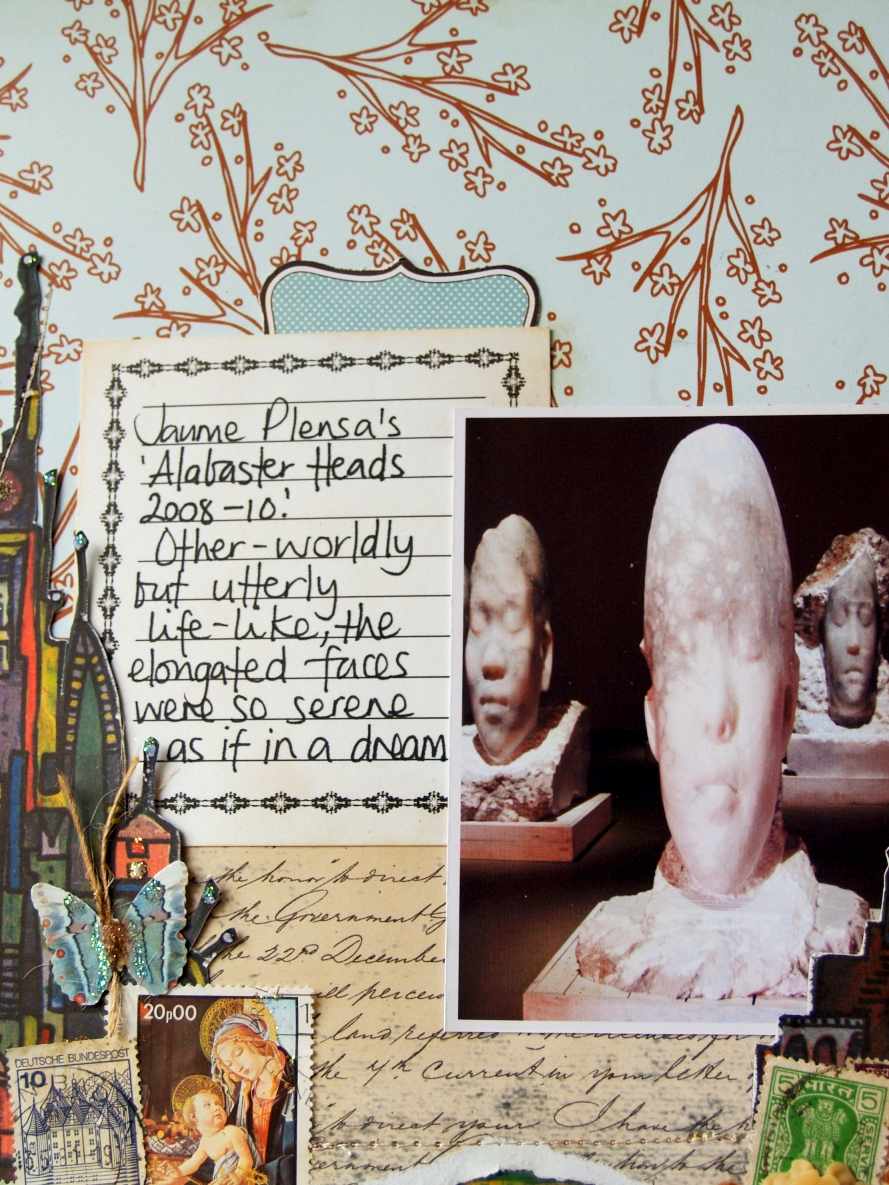 Jaume Plensa's
'Alabaster Heads
2008-10.'
Other-worldly
but utterly
life-like, the
elongated faces
were so serene
as if in a dream
the honor to direct
the Government
the 22nd December
land referred
the 4th Current in your letter
to direct your I have the
20p00
DEUTSCHE BUNDESPOST
10
5 भारत 5